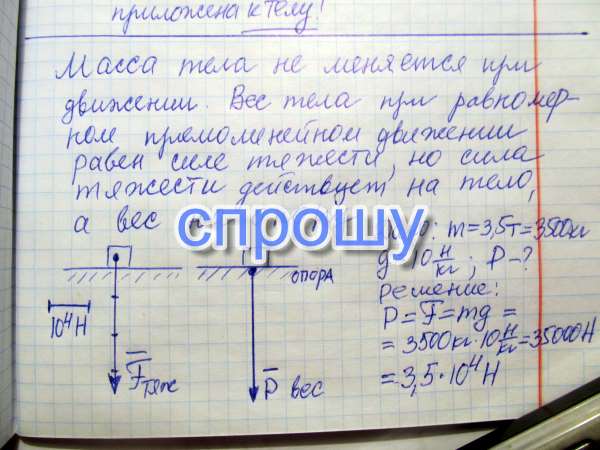 приложена к телу!
Масса тела не меняется при
движении. Вес тела при равномер-
ном прямолинейном движении
равен силе тяжести, но сила
тяжести действует на тело,
а вес
спрошу
: m=3,5т=3500кг
10 Н/кг ; P-?
решение:
P=F=mg=
=3500кг·10 Н/кг=35000Н
=3,5·10⁴Н
опора
10⁴Н
F тяж
P вес